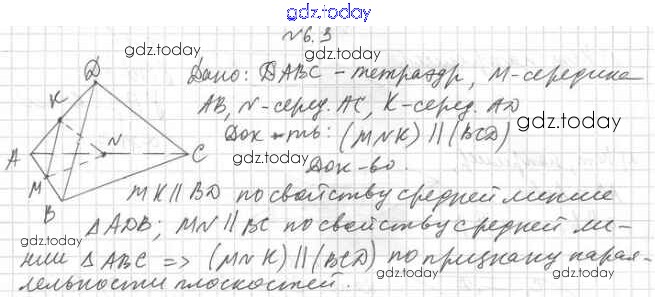 gdz.today
№6.3
gdz.today
Дано: DABC - тетраэдр, M-середина
AB, N-серед. AC, K-серед. AD
gdz.today
Док-ть: (MNK) || (BCD)
gdz.today
Док-во.
D
K
A
N
C
M
B
gdz.today
MK || BD по свойству средней линии
△ADB; MN || BC по свойству средней ли-
нии △ABC => (MNK) || (BCD) по признаку парал-
лельности плоскостей.
gdz.today
gdz.today
gdz.today
gdz.today